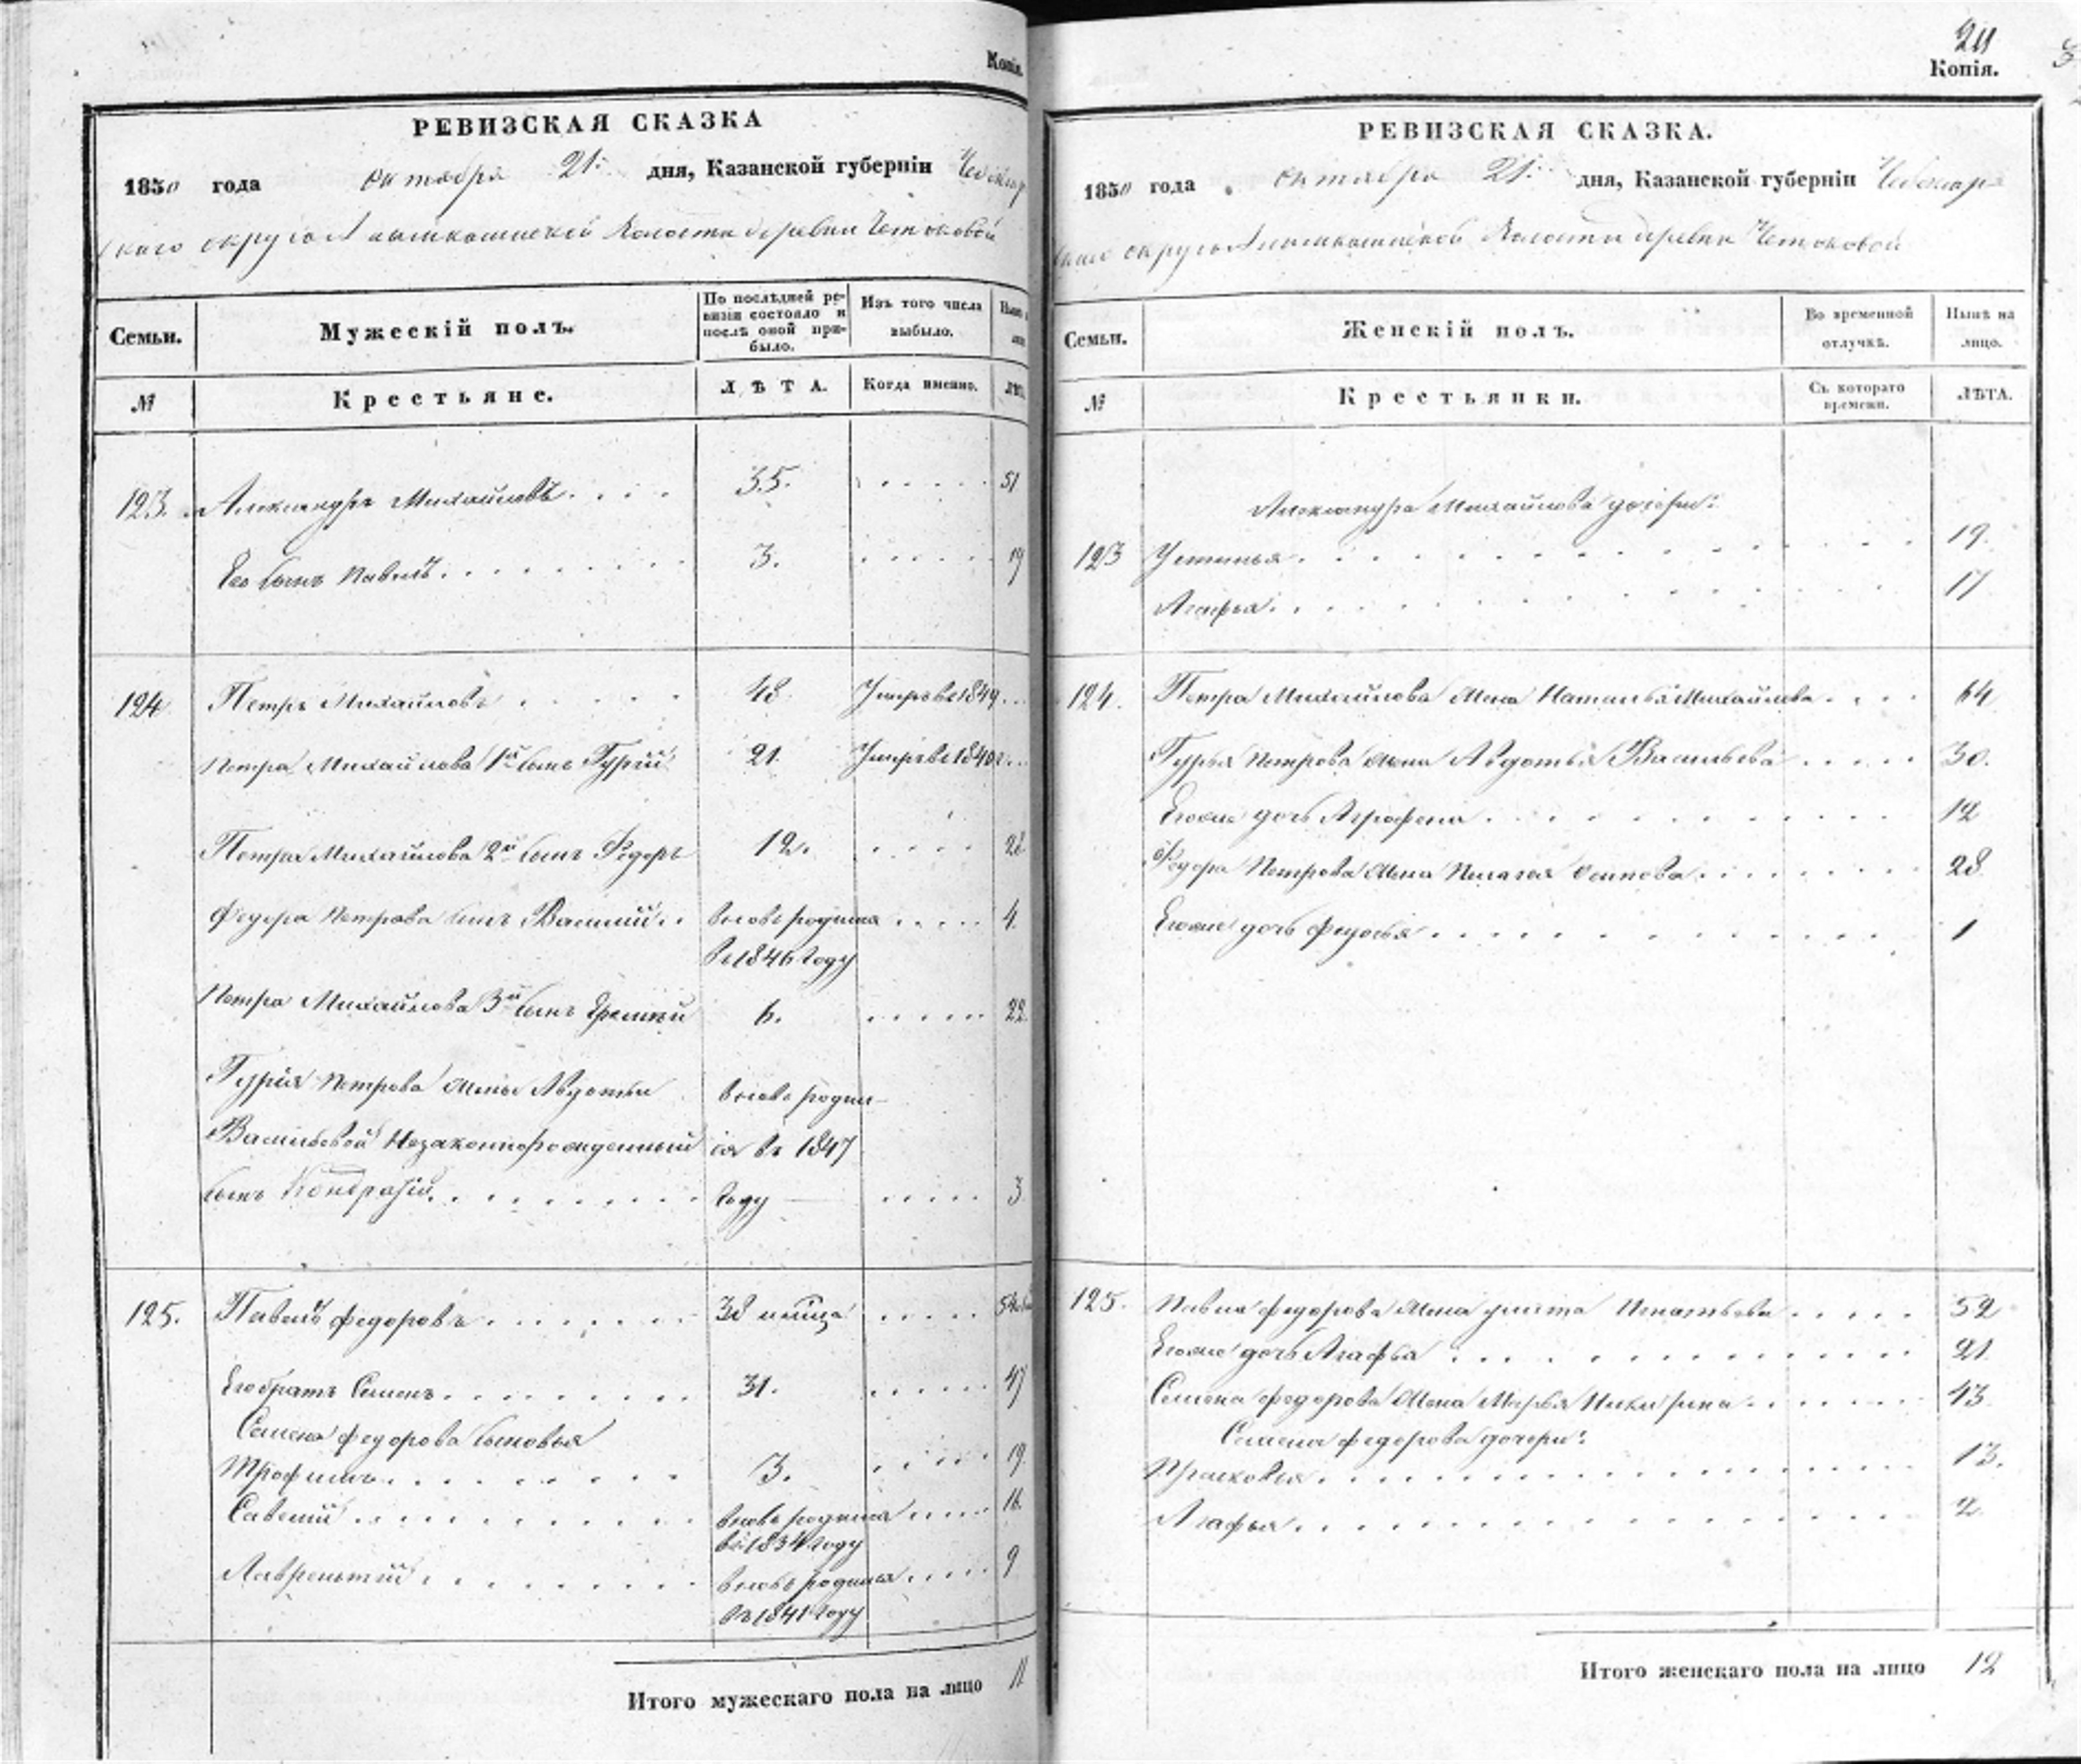 Копія.
РЕВИЗСКАЯ СКАЗКА
1850 года октября 21: дня, Казанской губерніи Чебоксар
скаго округа волости деревни
Семьи. Мужескій полъ. По послѣдней ре- визіи состояло и послѣ оной при- было. Изъ того числа выбыло.
№ Крестьяне. ЛѢТА. Когда именно. ЛѢТА
123. Александръ Михайловъ 35. 51
Его сынъ Павелъ 3. 19
124 Петръ Михайловъ 48 Умръ въ 1849
Петра Михайлова 1й сынъ Гурій 21 Умръ въ 1840 г.
Петра Михайлова 2й сынъ Федоръ 12. 28
Федора Петрова сынъ Василий вновь родился 4
въ 1846 году
Петра Михайлова 3й сынъ 6. 22
Гурія Петрова жены Авдотьи вновь родил-
Васильевой Незаконнорожденный ся въ 1847
сынъ Кондратій году 3
125. Павелъ Федоровъ 38 54
Его братъ Семенъ 31. 47
Семена Федорова сыновья
Трофимъ 3. 19
Савелий вновь родился 16
въ 1834 году
Лаврентий вновь родился 9
въ 1841 году
Итого мужескаго пола на лицо 11
Копія.
РЕВИЗСКАЯ СКАЗКА.
1850 года октября 21: дня, Казанской губерніи Чебоксар
скаго округа волости деревни
Семьи. Женскій полъ. Во временной отлучкѣ. Нынѣ на лицо.
№ Крестьянки. Съ котораго времени. ЛѢТА.
Александра Михайлова дочери:
123 Устинья 19.
Агафья 17
124. Петра Михайлова жена Наталья Михайлова 64
Гурья Петрова жена Авдотья Васильева 30.
Егоже дочь Аграфена 12
Федора Петрова жена Пелагея Осипова 28
Егоже дочь Федосья 1
125. Павла Федорова жена Улита Игнатьева 52
Егоже дочь Агафья 21
Семена Федорова жена Марья Никитина 43
Семена Федорова дочери:
Прасковья 13.
Агафья 2
Итого женскаго пола на лицо 12